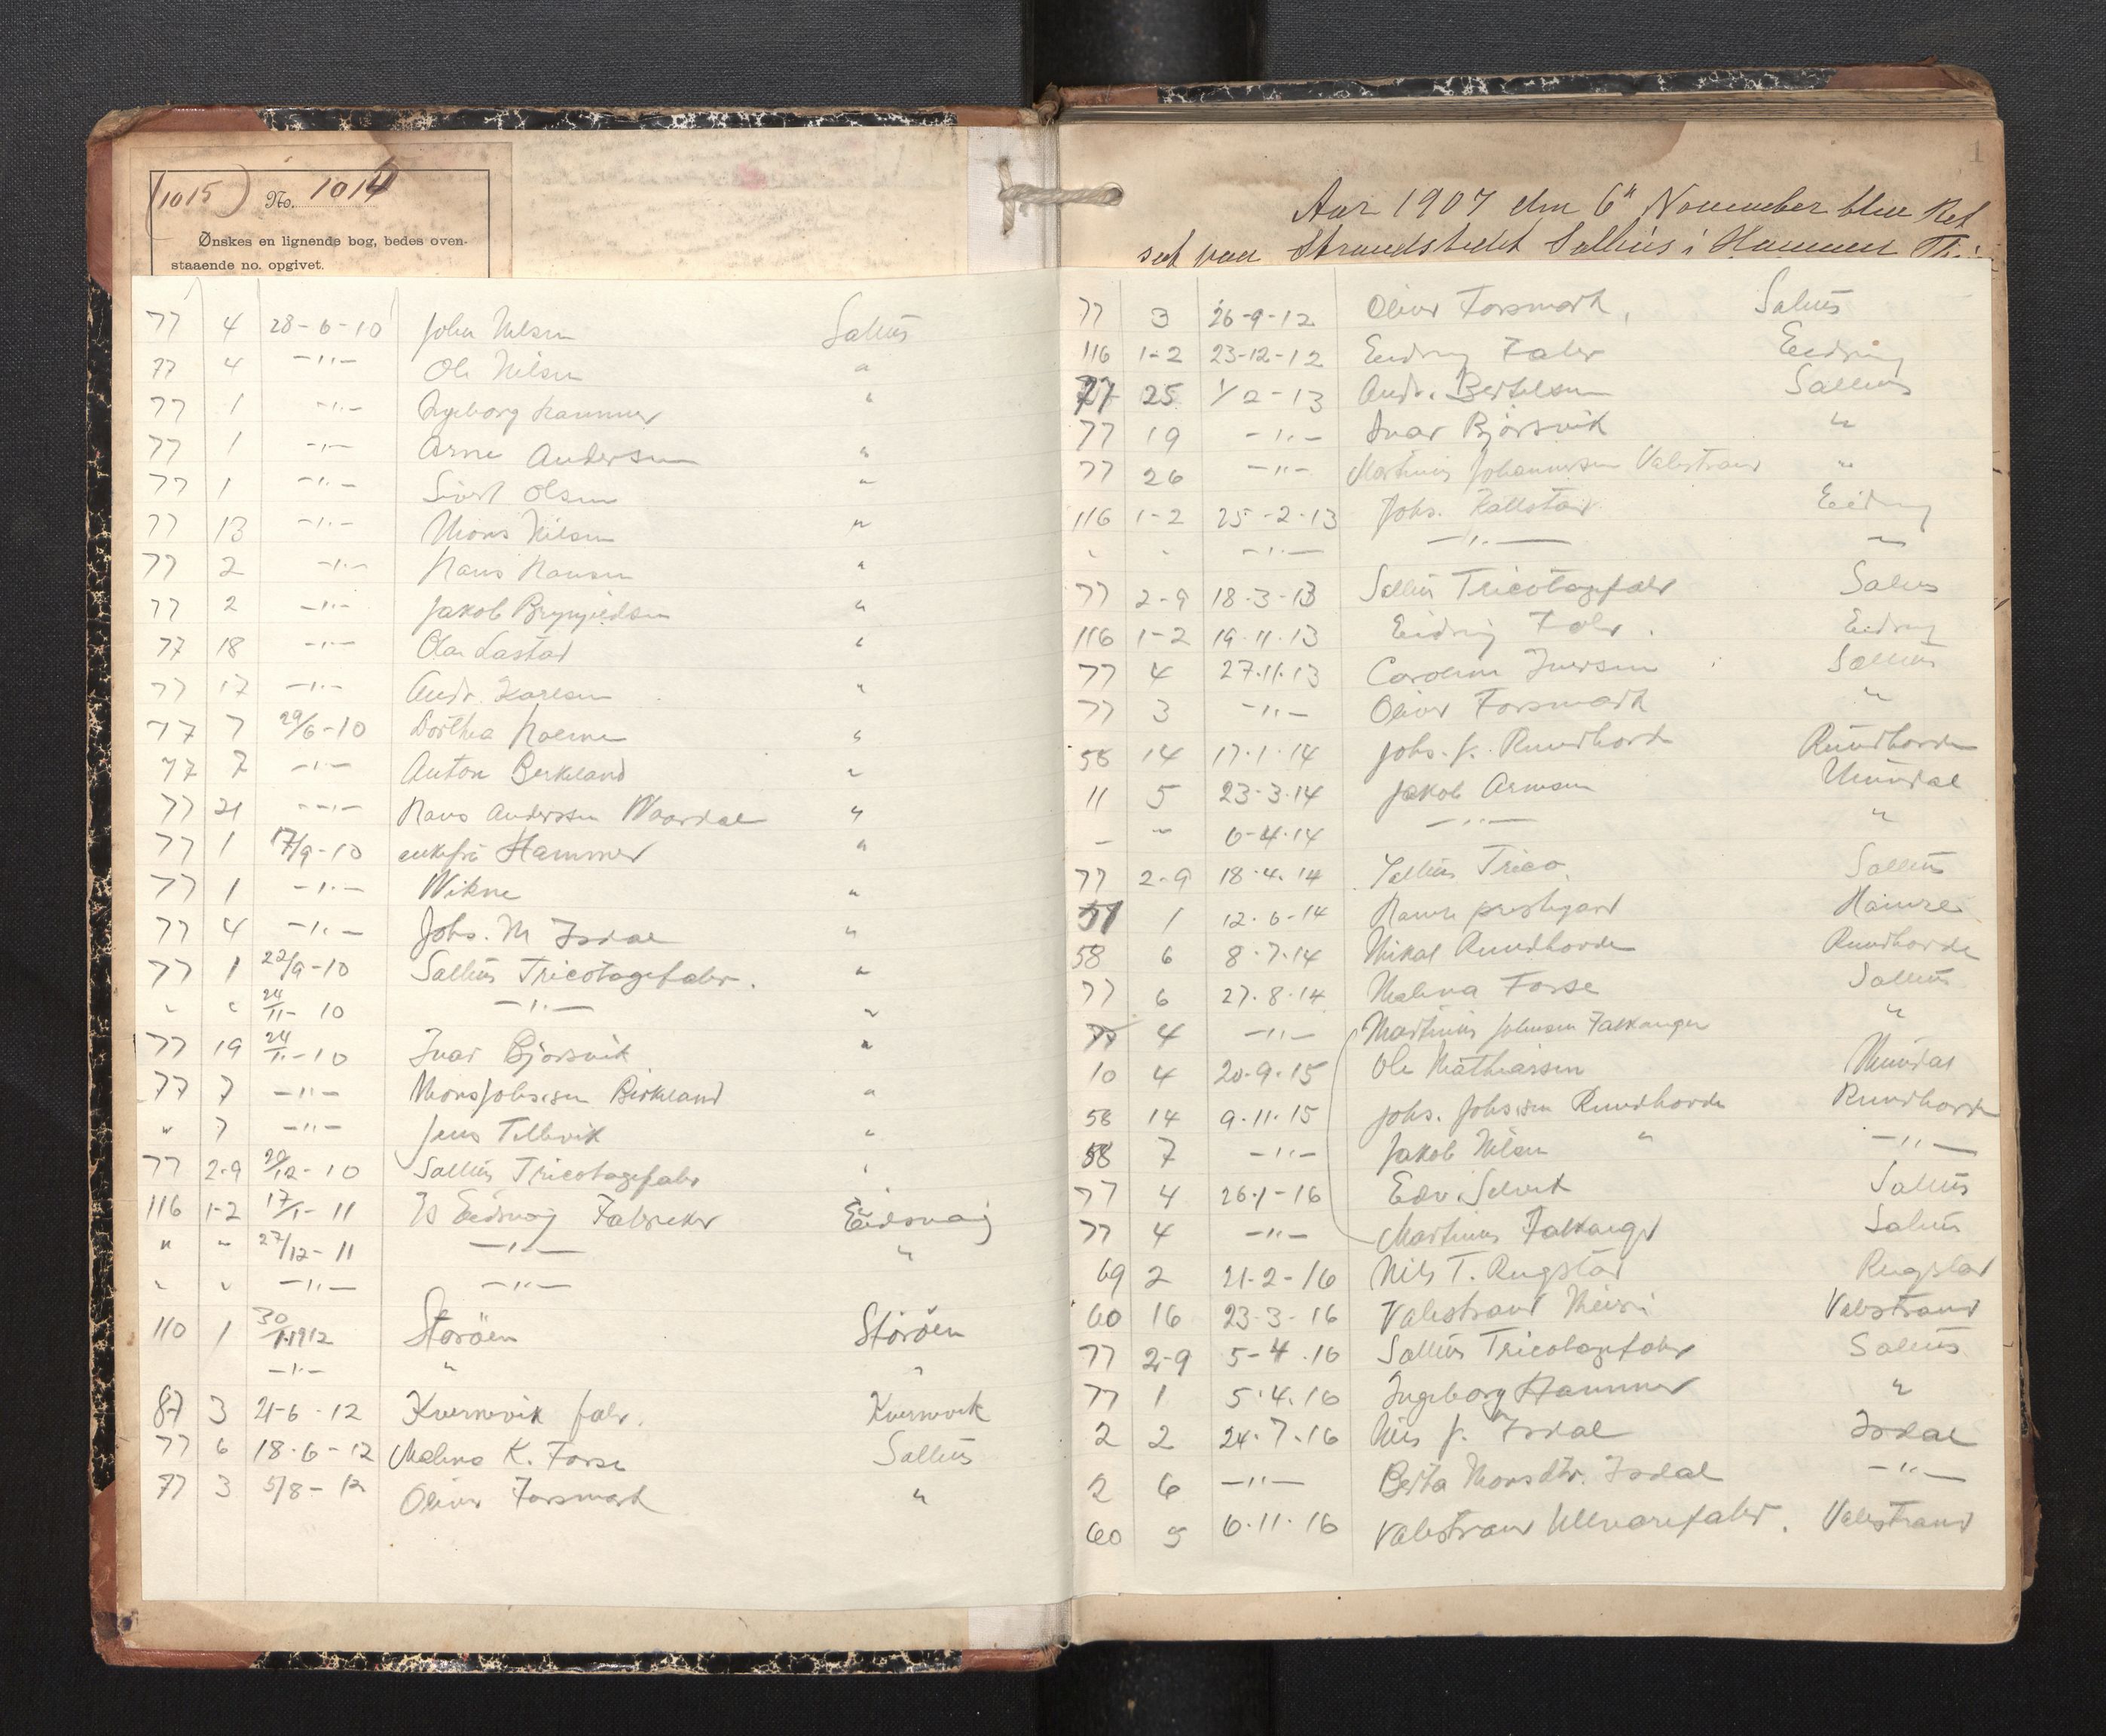 (1015) No. 1014
Ønskes en lignende bog, bedes oven-
staaende no. opgivet.
77 4 28-6-10 John Nilsen Salhus
77 4 -"- Ole Nilsen "
77 1 -"- Ingeborg Hammer "
77 1 -"- Arne Andersen "
77 1 -"- Sivert Olsen "
77 13 -"- Mons Nilsen "
77 2 -"- Hans Hansen "
77 2 -"- Jakob Brynjeldsen "
77 18 -"- Ola Lastad "
77 17 -"- Andr. Karlsen "
77 7 29/6-10 Dorthea "
77 7 -"- Anton Berkeland "
77 21 -"- Hans Anderssen Waardal "
77 1 17/9-10 enkefru Hammer "
77 1 -"- Wikne "
77 4 -"- Johs. M Isdal "
77 1 22/9-10 Salhus Tricotagefabr. "
" " 24/11-10 -"- "
77 19 24/11-10 Ivar Bjørsvik "
77 7 -"- Mons Johs.sen Birkeland "
" 7 -"- Jens Tellevik "
77 2-9 29/12-10 Salhus Tricotagefabr "
116 1-2 17/1-11 Eidsvaag Fabrikker Eidsvaag
" " 27/12-11 -"- "
" " -"- -"-
110 1 30/1 1912 Storöen Storöen
-"- " "
87 3 21-6-12 Kvernevik fabr. Kvernevik
77 6 18-6-12 Malena K. Forse Salhus
77 3 5/8-12 Oliver Forsmark "
1
Aar 1907 den 6" November blev Ret
sat paa Strandstedet Salhus i Hammer
77 3 26-9-12 Oliver Forsmark, Salhus
116 1-2 23-12-12 Eidsvåg Fabr Eidsvåg
77 25 1/2-13 Andr. Bertelsen Salhus
77 19 -"- Ivar Bjørsvik "
77 26 -"- Martinus Johannesen Valestrand "
116 1-2 25-2-13 Johs. Kallstad Eidsvåg
" " -"- -"- "
77 2-9 18-3-13 Salhus Tricotagefabr Salhus
116 1-2 19.11.13 Eidsvåg Fabr. Eidsvåg
77 4 27.11.13 Caroline Iversen Salhus
77 3 -"- Oliver Forsmark "
58 14 17.1.14 Johs. J. Rundhovde Rundhovde
11 5 23-3-14 Jakob Arnesen Mundal
- " 6-4-14 -"- "
77 2-9 18.4.14 Salhus Trico. Salhus
51 1 12-6-14 Hamre prestegard Hamre
58 6 8.7.14 Mikal Rundhovde Rundhovde
77 6 27.8.14 Malena Forse Salhus
77 4 -"- Martinus Johnsen Falkanger "
10 4 20.9.15 Ole Mathiassen Mundal
58 14 9.11.15 Johs. Johs.sen Rundhovde Rundhovde
58 7 -"- Jakob Nilsen " -"-
77 4 26.1-16 Edv. Selvik Salhus
77 4 -"- Martinus Falkanger Salhus
69 2 21-2-16 Nils T. Rugstad Rugstad
60 16 23-3-16 Valestrand Meieri Valestrand
77 2-9 5-4.16 Salhus Tricotagefabr Salhus
77 1 5.4.16 Ingeborg Hammer "
2 2 24.7.16 Nils J. Isdal Isdal
2 6 -"- Berta Monsdtr. Isdal -"-
60 5 6.11.16 Valestrand Ullvarefabr. Valestrand